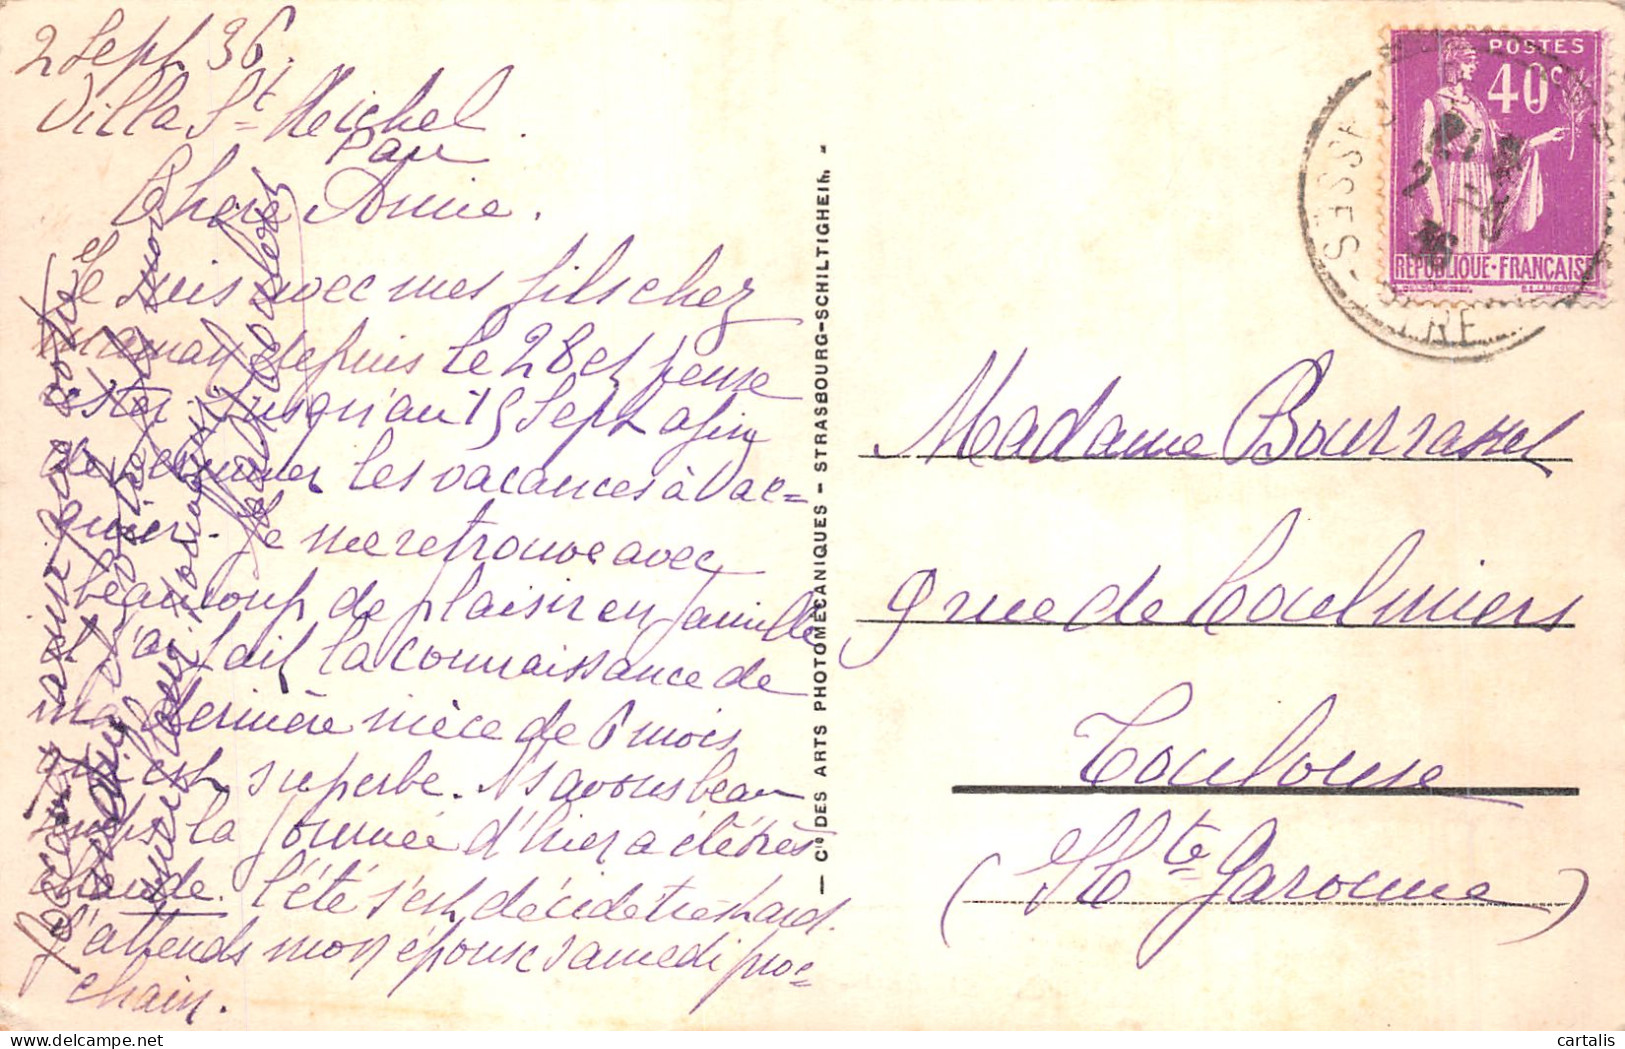 2 Sept 36.
Villa St Michel.
Pau
Chère Amie.
Je suis avec mes fils chez
maman depuis le 28 et pense
rester jusqu'au 15 Sept afin
de terminer les vacances à Vac=
quiers. Je me retrouve avec
beaucoup de plaisir en famille
et j'ai fait la connaissance de
ma dernière nièce de 6 mois
qui est superbe. Ns avons beau
temps la journée d'hier a été très
chaude. L'été s'est décidé très tard.
J'attends mon époux samedi pro=
chain.
— Cie DES ARTS PHOTOMECANIQUES - STRASBOURG-SCHILTIGHEIM -
POSTES
40c
REPUBLIQUE-FRANCAISE
Madame Bourrassel
9 rue de Coulmiers
Toulouse
(Hte Garonne)
cartalis